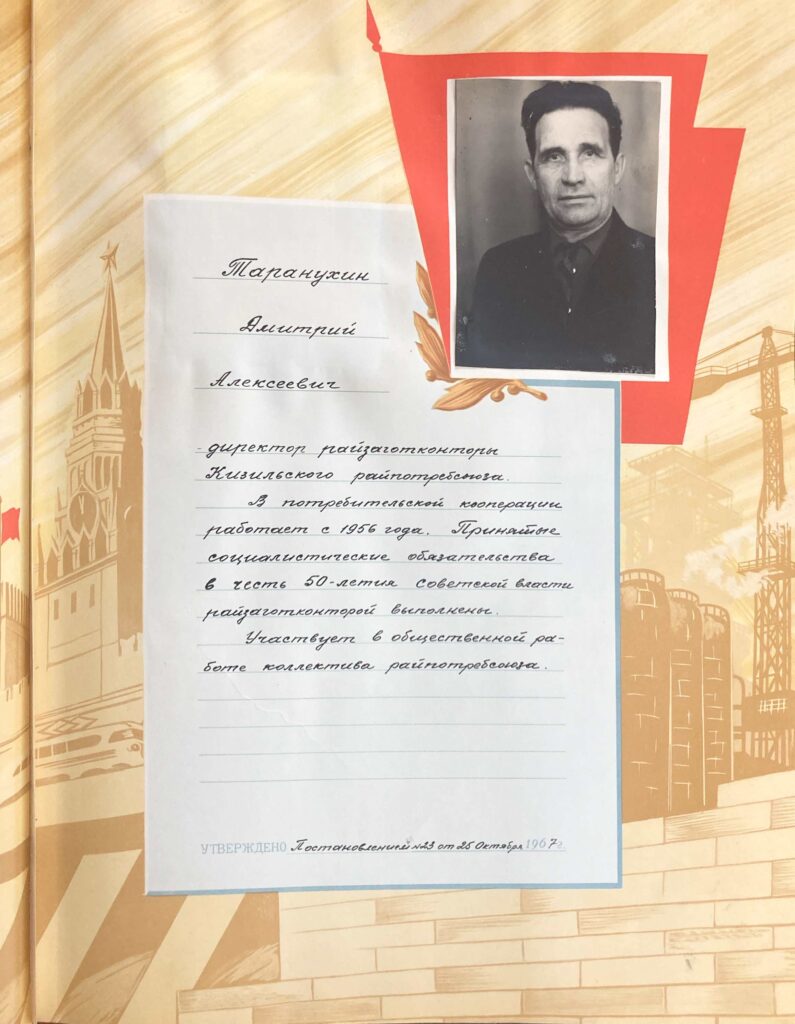 Таранухин
Дмитрий
Алексеевич
директор райзаготконторы
Кизильского райпотребсоюза.
В потребительской кооперации
работает с 1956 года. Принятые
социалистические обязательства
в честь 50-летия Советской власти
райзаготконторой выполнены.
Участвует в общественной ра-
боте коллектива райпотребсоюза.
УТВЕРЖДЕНО Постановлением №23 от 25 Октября 1967 г.